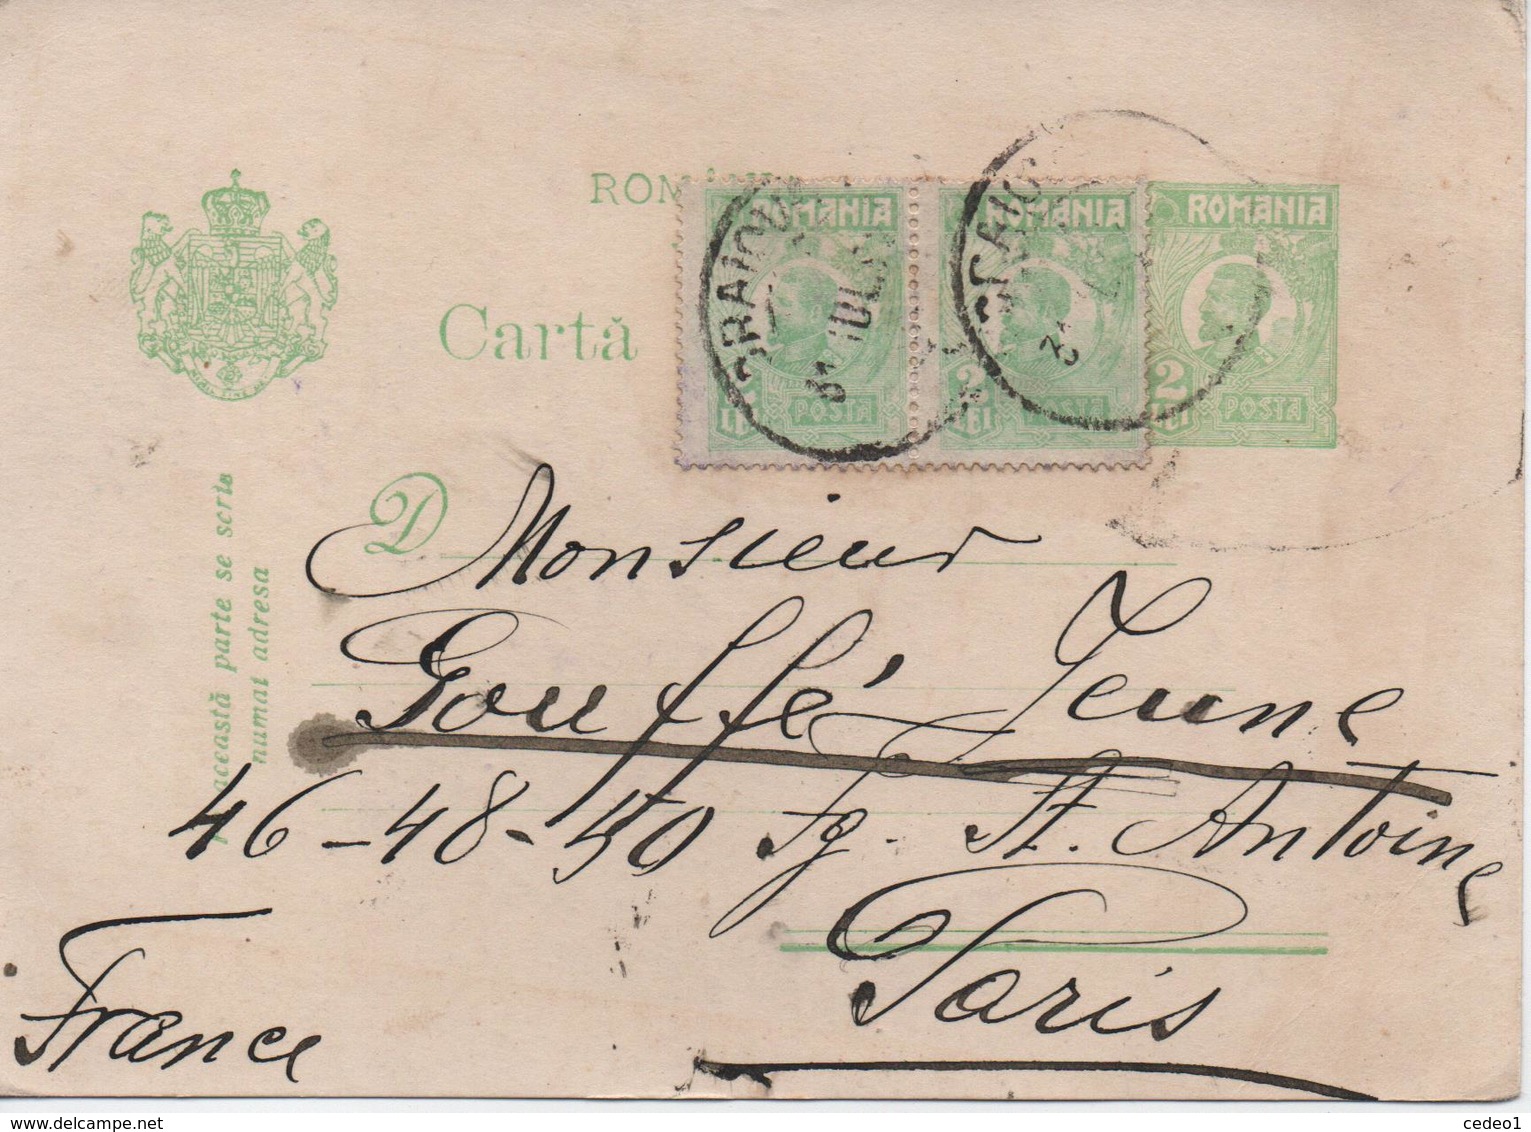 ROMÂNIA
ROMANIA
ROMANIA
Cartă
CRAIOVA
31 IUL.
31
LEI POSTA
2 LEI POSTA
2 LEI POSTA
D
Pe această parte se scrie
numai adresa
Monsieur
Gouffé Jeune
46-48-50 Fg. St. Antoine
Paris
France
© www.delcampe.net
cedeo1